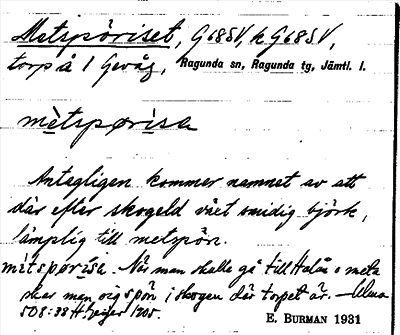 Metspöriset, G68SV, k G68SV,
torp å 1 Gevåg, Ragunda sn, Ragunda tg, Jämtl. l.
mètspørisa
Antagligen kommer namnet av att
där efter skogeld växt smidig björk,
lämplig till metspön.
mètspørisa. När man skulle gå till Halån o meta
skar man sig spön i skogen där torpet är.
508:38 H. Geijer 1905.
E. BURMAN 1931